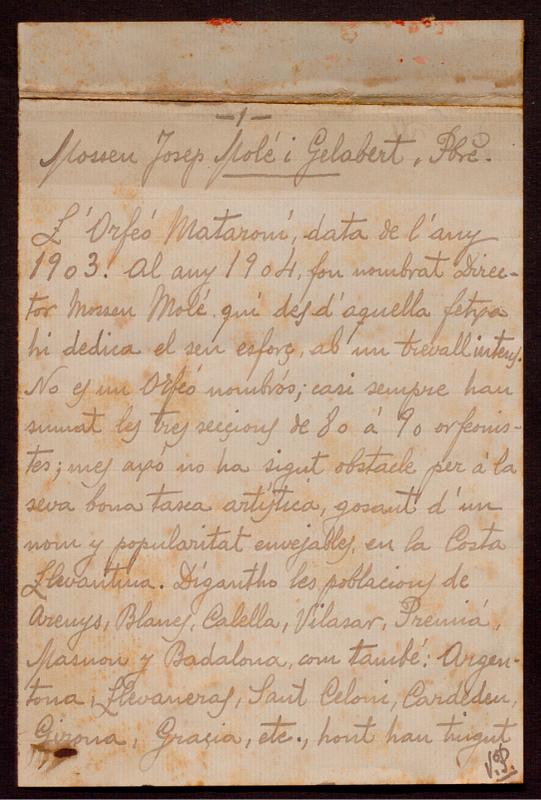 -1-
Mossen Josep Molé i Gelabert, Pbre.
L'Orfeó Mataroní, data de l'any
1903. Al any 1904, fou nombrat Direc-
tor Mossen Molé, qui desd'aquella fetxa
hi dedica el seu esforç, ab un trevall intens.
No es un Orfeó nombrós; casi sempre han
sumat les tres seccions de 80 á 90 orfeonis-
tes; mes axó no ha sigut obstacle per á la
seva bona tasca artística, gosant d'un
nom y popularitat envejables, en la Costa
Llevantina. Digantho les poblacions de
Arenys, Blanes, Calella, Vilasar, Premiá,
Masnou y Badalona, com també: Argen-
tona, Llevaneras, Sant Celoni, Cardedeu,
Girona, Gracia, etc., hont han tingut
V.S.